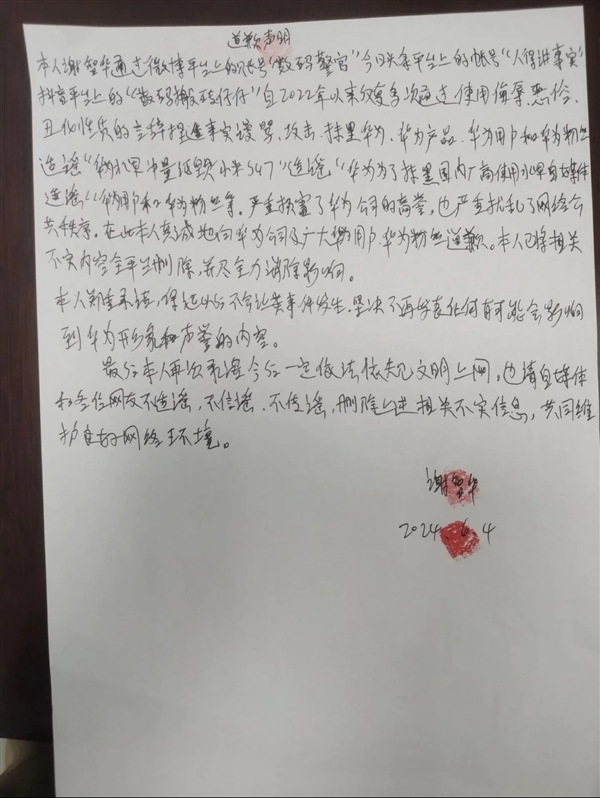 道歉声明
本人谢智华通过微博平台上的账号"数码警官"今日头条平台上的帐号"人得讲事实"
抖音平台上的"数码搬砖仔仔"自2022年以来反复多次通过使用侮辱、恶俗、
丑化性质的言辞捏造事实谩骂、攻击、抹黑华为、华为产品、华为用户和华为粉丝
造谣"华为水军 诋毁小米SU7"造谣"华为为了抹黑国内厂商使用水军自媒体
造谣"华为用户和华为粉丝等。严重损害了华为公司的商誉,也严重扰乱了网络公
共秩序。在此本人真诚地向华为公司及广大华为用户、华为粉丝道歉。本人已将相关
不实内容全平台删除,并尽全力消除影响。
本人郑重承诺,保证以后不会让类事件发生,坚决不再发表任何有可能会影响
到华为形象和声誉的内容。
最后本人再次承诺今后一定依法依规文明上网,也请自媒体
和各位网友不造谣,不信谣、不传谣,删除上述相关不实信息,共同维
护良好网络环境。
谢智华
2024.6.4